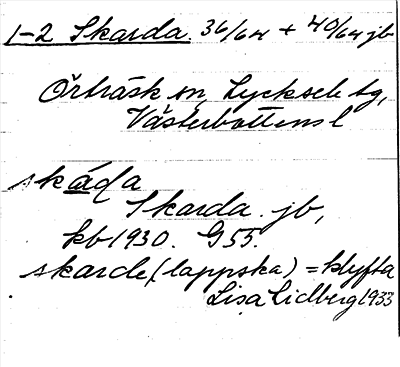 1-2 Skarda. 36/64 + 40/64 jb
Örträsk sn, Lycksele tg,
Västerbottens l
skáda
Skarda. jb,
kb 1930. G 55.
skarde (lappska) = klyfta
Lisa Lidberg 1933